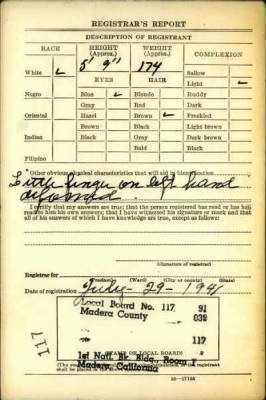 REGISTRAR'S REPORT
DESCRIPTION OF REGISTRANT
RACE HEIGHT (Approx.) WEIGHT (Approx.) COMPLEXION
5' 9" 174
White ✓ EYES HAIR Sallow
Light ✓
Negro Blue ✓ Blonde Ruddy
Gray Red Dark
Oriental Hazel Brown ✓ Freckled
Brown Black Light brown
Indian Black Gray Dark brown
Bald Black
Filipino
Other obvious physical characteristics that will aid in identification
Little finger on left hand
deformed
I certify that my answers are true; that the person registered has read or has had
read to him his own answers; that I have witnessed his signature or mark and that
all of his answers of which I have knowledge are true, except as follows:
(Signature of registrar)
Registrar for
(Precinct) (Ward) (City or county) (State)
Date of registration July - 29 - 1941
Local Board No. 117 91
Madera County 039
117
1st Natl. Bk. Bldg., Room
Madera, California
(STAMP OF LOCAL BOARD)
117